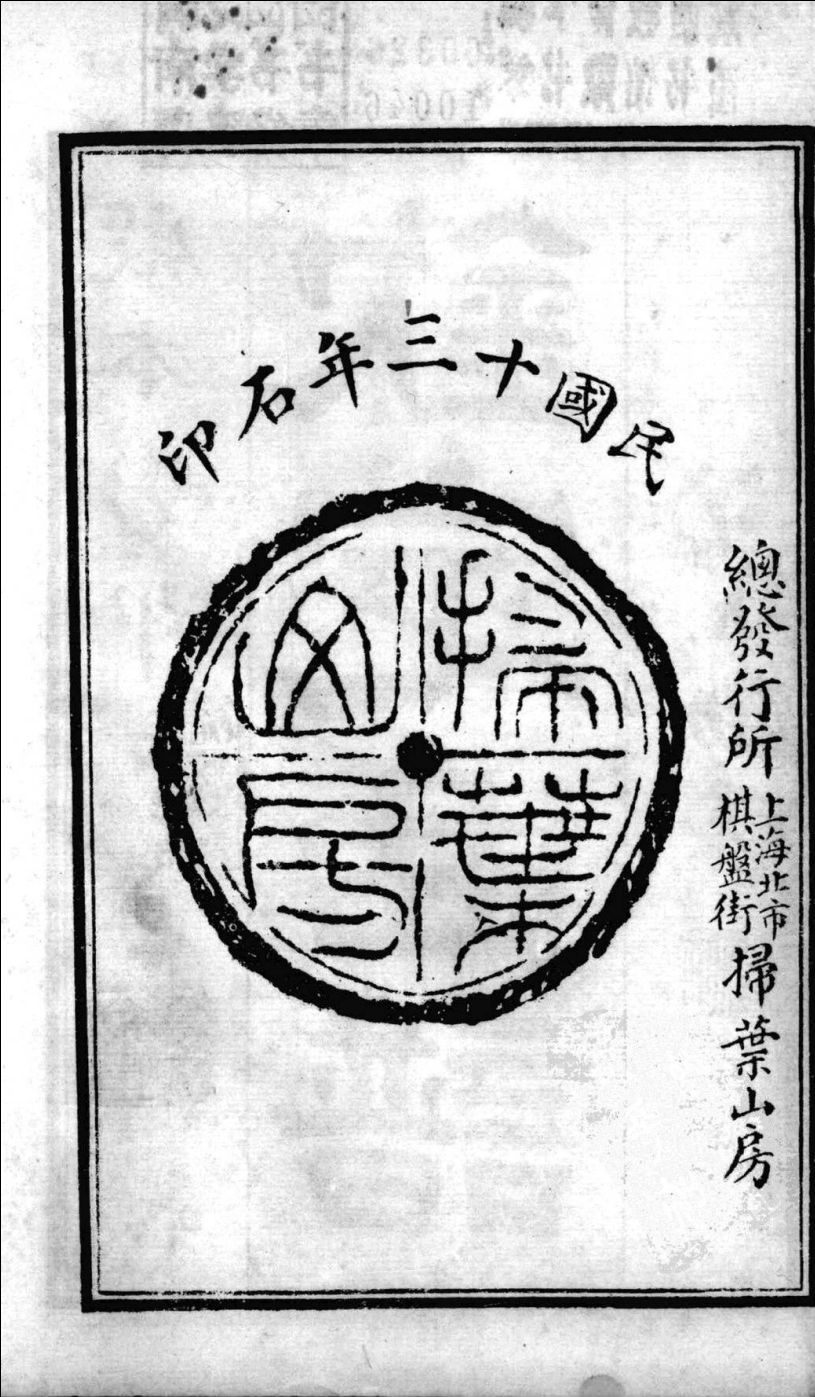 民國十三年石印
掃葉山房
總發行所 上海北市棋盤街 掃葉山房